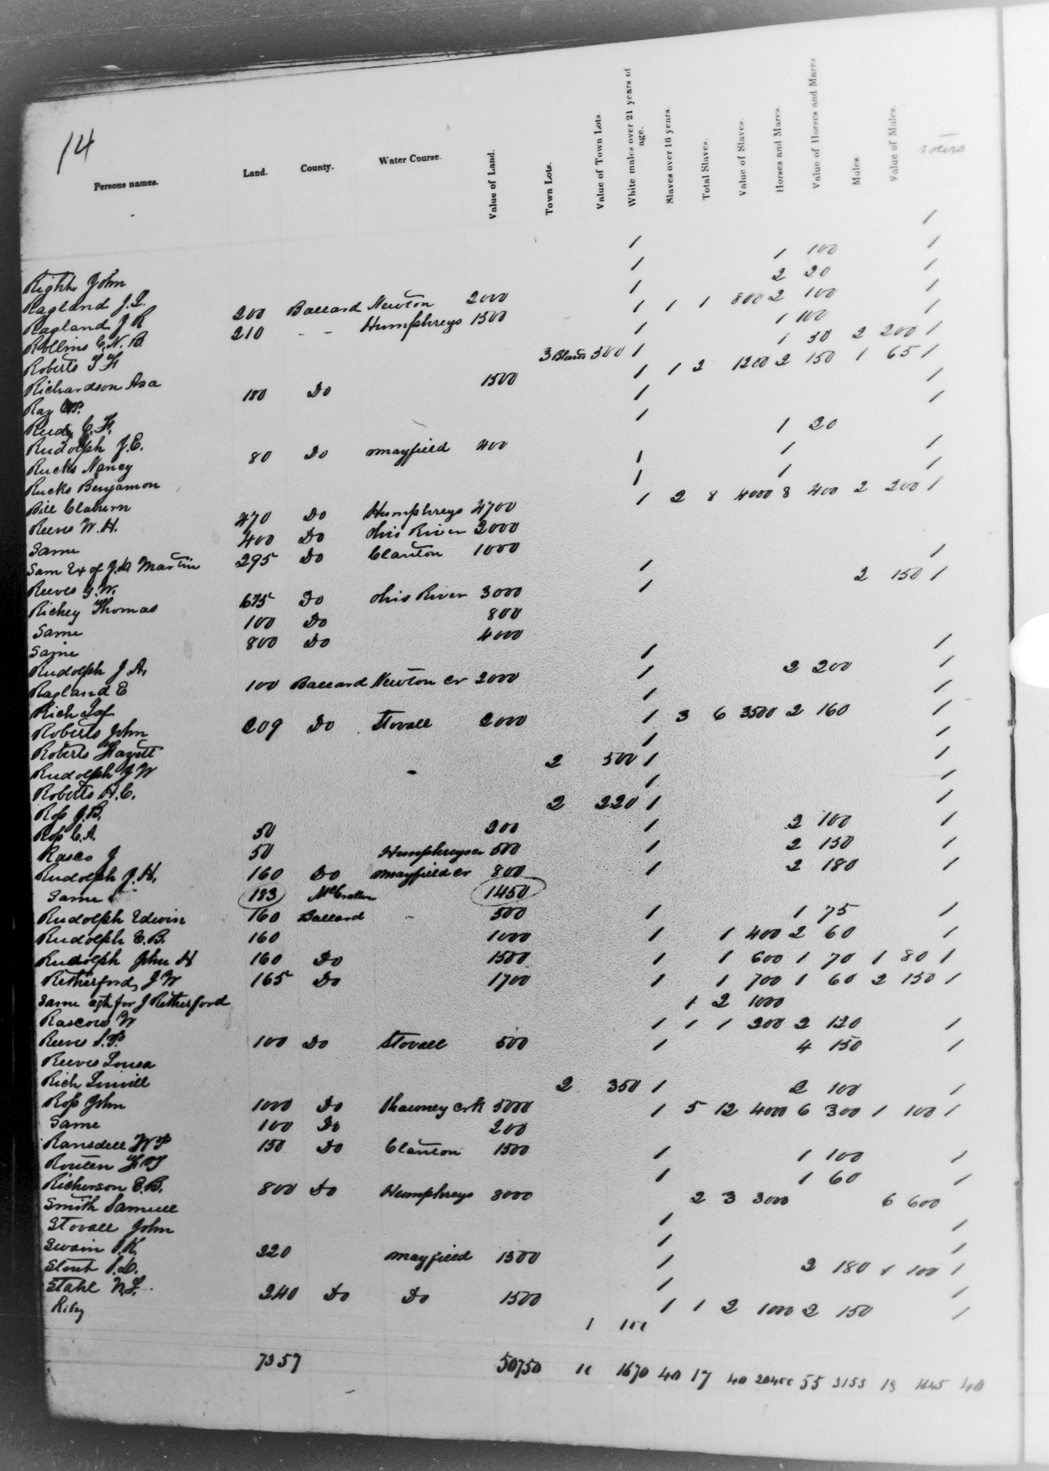 14
Persons names. Land. County. Water Course. Value of Land. Town Lots. Value of Town Lots White males over 21 years of age. Slaves over 16 years. Total Slaves. Value of Slaves. Horses and Mares. Value of Horses and Mares Mules Value of Mules. Voters
Right John 1 1
Ragland J. L. 1 1 100 1
Ragland J R 200 Ballard Newton 2000 1 2 20 1
Rollins C. N. B. 210 - - Humphreys 1500 1 1 1 800 2 100 1
Roberts T F 1 1 100 1
Richardson Asa 3 300 1 1 30 2 200 1
Ray 180 Do 1500 1 1 2 1200 2 150 1 65 1
Rudy C. F. 1 1
Rudolph J. E. 1 1
Rucks Nancy 80 Do Mayfield 400 1 20
Rucks Benjamon 1 1 1
Bill Claburn 1 1 1
Reeves W. H. 470 Do Humphreys 4700 1 2 8 4000 8 400 2 200 1
Same 400 Do Ohio River 2000
Sam Ex of J. Martin 295 Do Clanton 1000
Reeves G. W. 1 1
Richey Thomas 675 Do Ohio River 3000 1 2 150 1
Same 100 Do 800
Same 800 Do 4000
Rudolph J. A. 1 1
Ragland E 100 Ballard Newton Cr 2000 1 2 200 1
Rich 1 1
Roberts John 209 Do Stovall 2000 1 3 6 3500 2 160 1
Roberts 1 1
Rudolph G W 2 500 1 1
Roberts H. C. 1 1
Ross J. B. 2 220 1 1
Ross C. A. 50 300 1 2 100 1
Rasco J 50 Humphreys cr 500 1 2 130 1
Rudolph J. H. 160 Do Mayfield cr 800 1 2 180 1
Same 183 McCracken 1450
Rudolph Edwin 160 Ballard - 500 1 1 75 1
Rudolph E. B. 160 1000 1 1 400 2 60 1
Rudolph John H 160 Do 1500 1 1 600 1 70 1 80 1
Retherford, J W 165 Do 1700 1 1 700 1 60 2 150 1
Same agt for J Retherford 1 2 1000
Rascow W 1 1 1 300 2 120 1
Reeves S. P. 100 Do Stovall 500 1 4 150 1
Reeves Louisa
Rich Linvill 2 350 1 2 100 1
Ross John 1000 Do Shawney Crk 5000 1 5 12 4000 6 300 1 100 1
Same 100 Do 200
Ransdell W P 150 Do Clanton 1500 1 1 100 1
Routen 1 1 60 1
Richerson E. B. 800 Do Humphreys 8000 2 3 3000 6 600
Smith Samuel 1 1
Stovall John 1 1
Swain P. K. 320 Mayfield 1300 1 2 180 100 1
Stout S. D. 1 1
Stahl N. F. 240 Do Do 1500 1 1 2 1000 2 150 1
Riley 1 100
7357 50750 1670 40 17 40 55 3155 1645 40